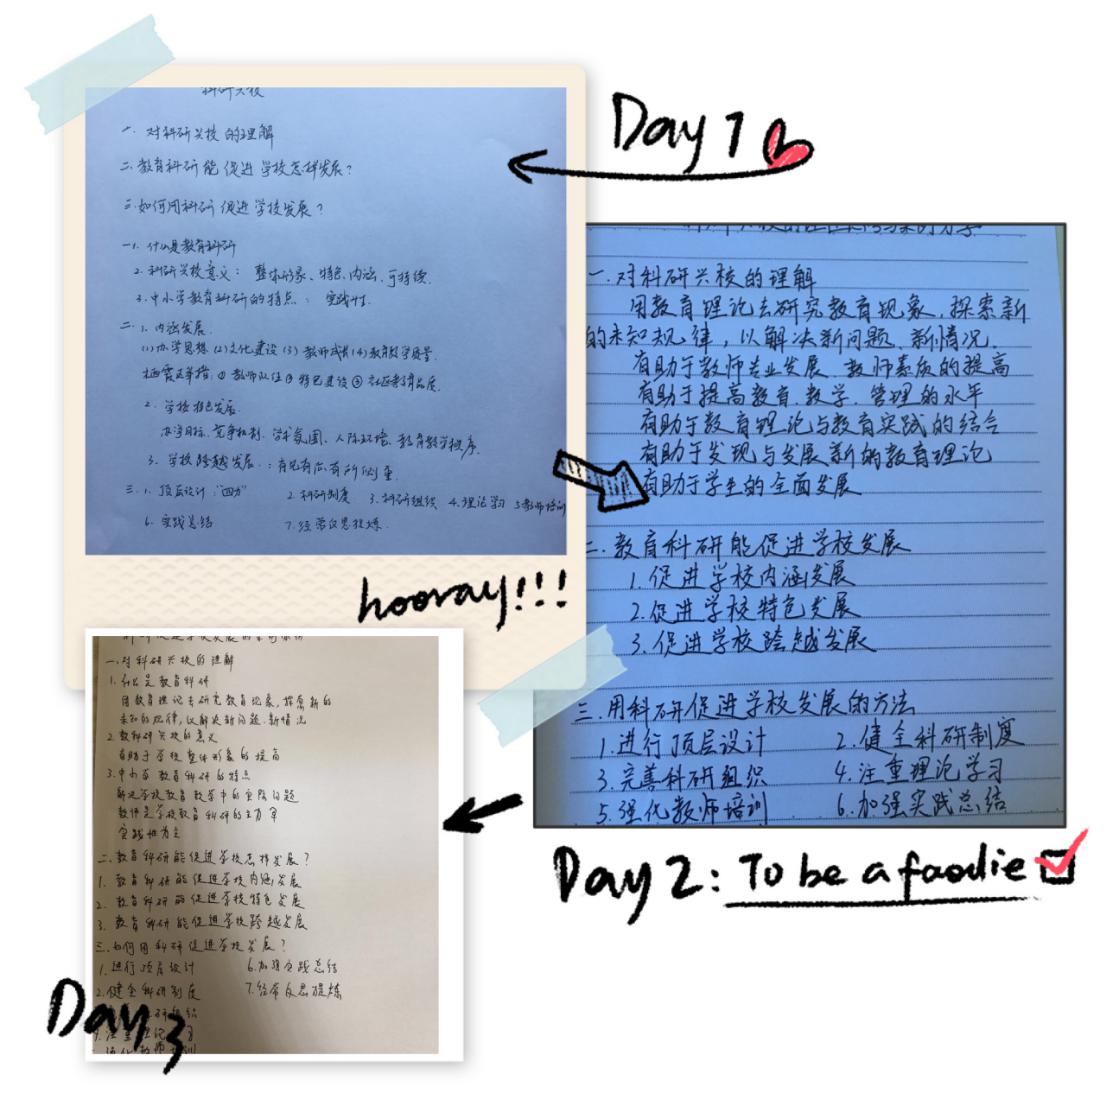 Day 1
科研兴校
一. 对科研兴校的理解
二. 教育科研能促进学校怎样发展？
三. 如何用科研促进学校发展？
一 1. 什么是教育科研
2. 科研兴校意义： 整体形象、特色、内涵、可持续.
3. 中小学教育科研的特点： 实践性.
二. 1. 内涵发展.
(1) 办学思想 (2) 文化建设 (3) 教师成长 (4) 教育教学质量.
2. 学校特色发展.
办学目标、竞争机制、学术氛围、人际环境、教育教学秩序.
3. 学校跨越发展.：有先有后有所侧重.
三. 1. 顶层设计："四为" 2. 科研制度 3. 科研组织 4. 理论学习 5 教师培训
6. 实践总结 7. 经常反思提炼.
hooray!!!
一. 对科研兴校的理解
用教育理论去研究教育现象, 探索新
的未知规律, 以解决新问题、新情况.
有助于教师专业发展、教师素质的提高
有助于提高教育、教学、管理的水平
有助于教育理论与教育实践的结合
有助于发现与发展新的教育理论
有助于学生的全面发展
二. 教育科研能促进学校发展
1. 促进学校内涵发展
2. 促进学校特色发展
3. 促进学校跨越发展
三. 用科研促进学校发展的方法
1. 进行顶层设计 2. 健全科研制度
3. 完善科研组织 4. 注重理论学习
5. 强化教师培训 6. 加强实践总结
Day 2: To be a foodie
一. 对科研兴校的理解
1. 什么是教育科研
用教育理论去研究教育现象, 探索新的
未知的规律, 以解决新问题、新情况
2. 教科研兴校的意义
有助于学校整体形象的提高
3. 中小学教育科研的特点
解决学校教育教学中的实际问题
教师是学校教育科研的主力军
实践性为主
二. 教育科研能促进学校怎样发展？
1. 教育科研能促进学校内涵发展
2. 教育科研能促进学校特色发展
3. 教育科研能促进学校跨越发展
三. 如何用科研促进学校发展？
1. 进行顶层设计 6. 加强实践总结
2. 健全科研制度 7. 经常反思提炼
Day 3